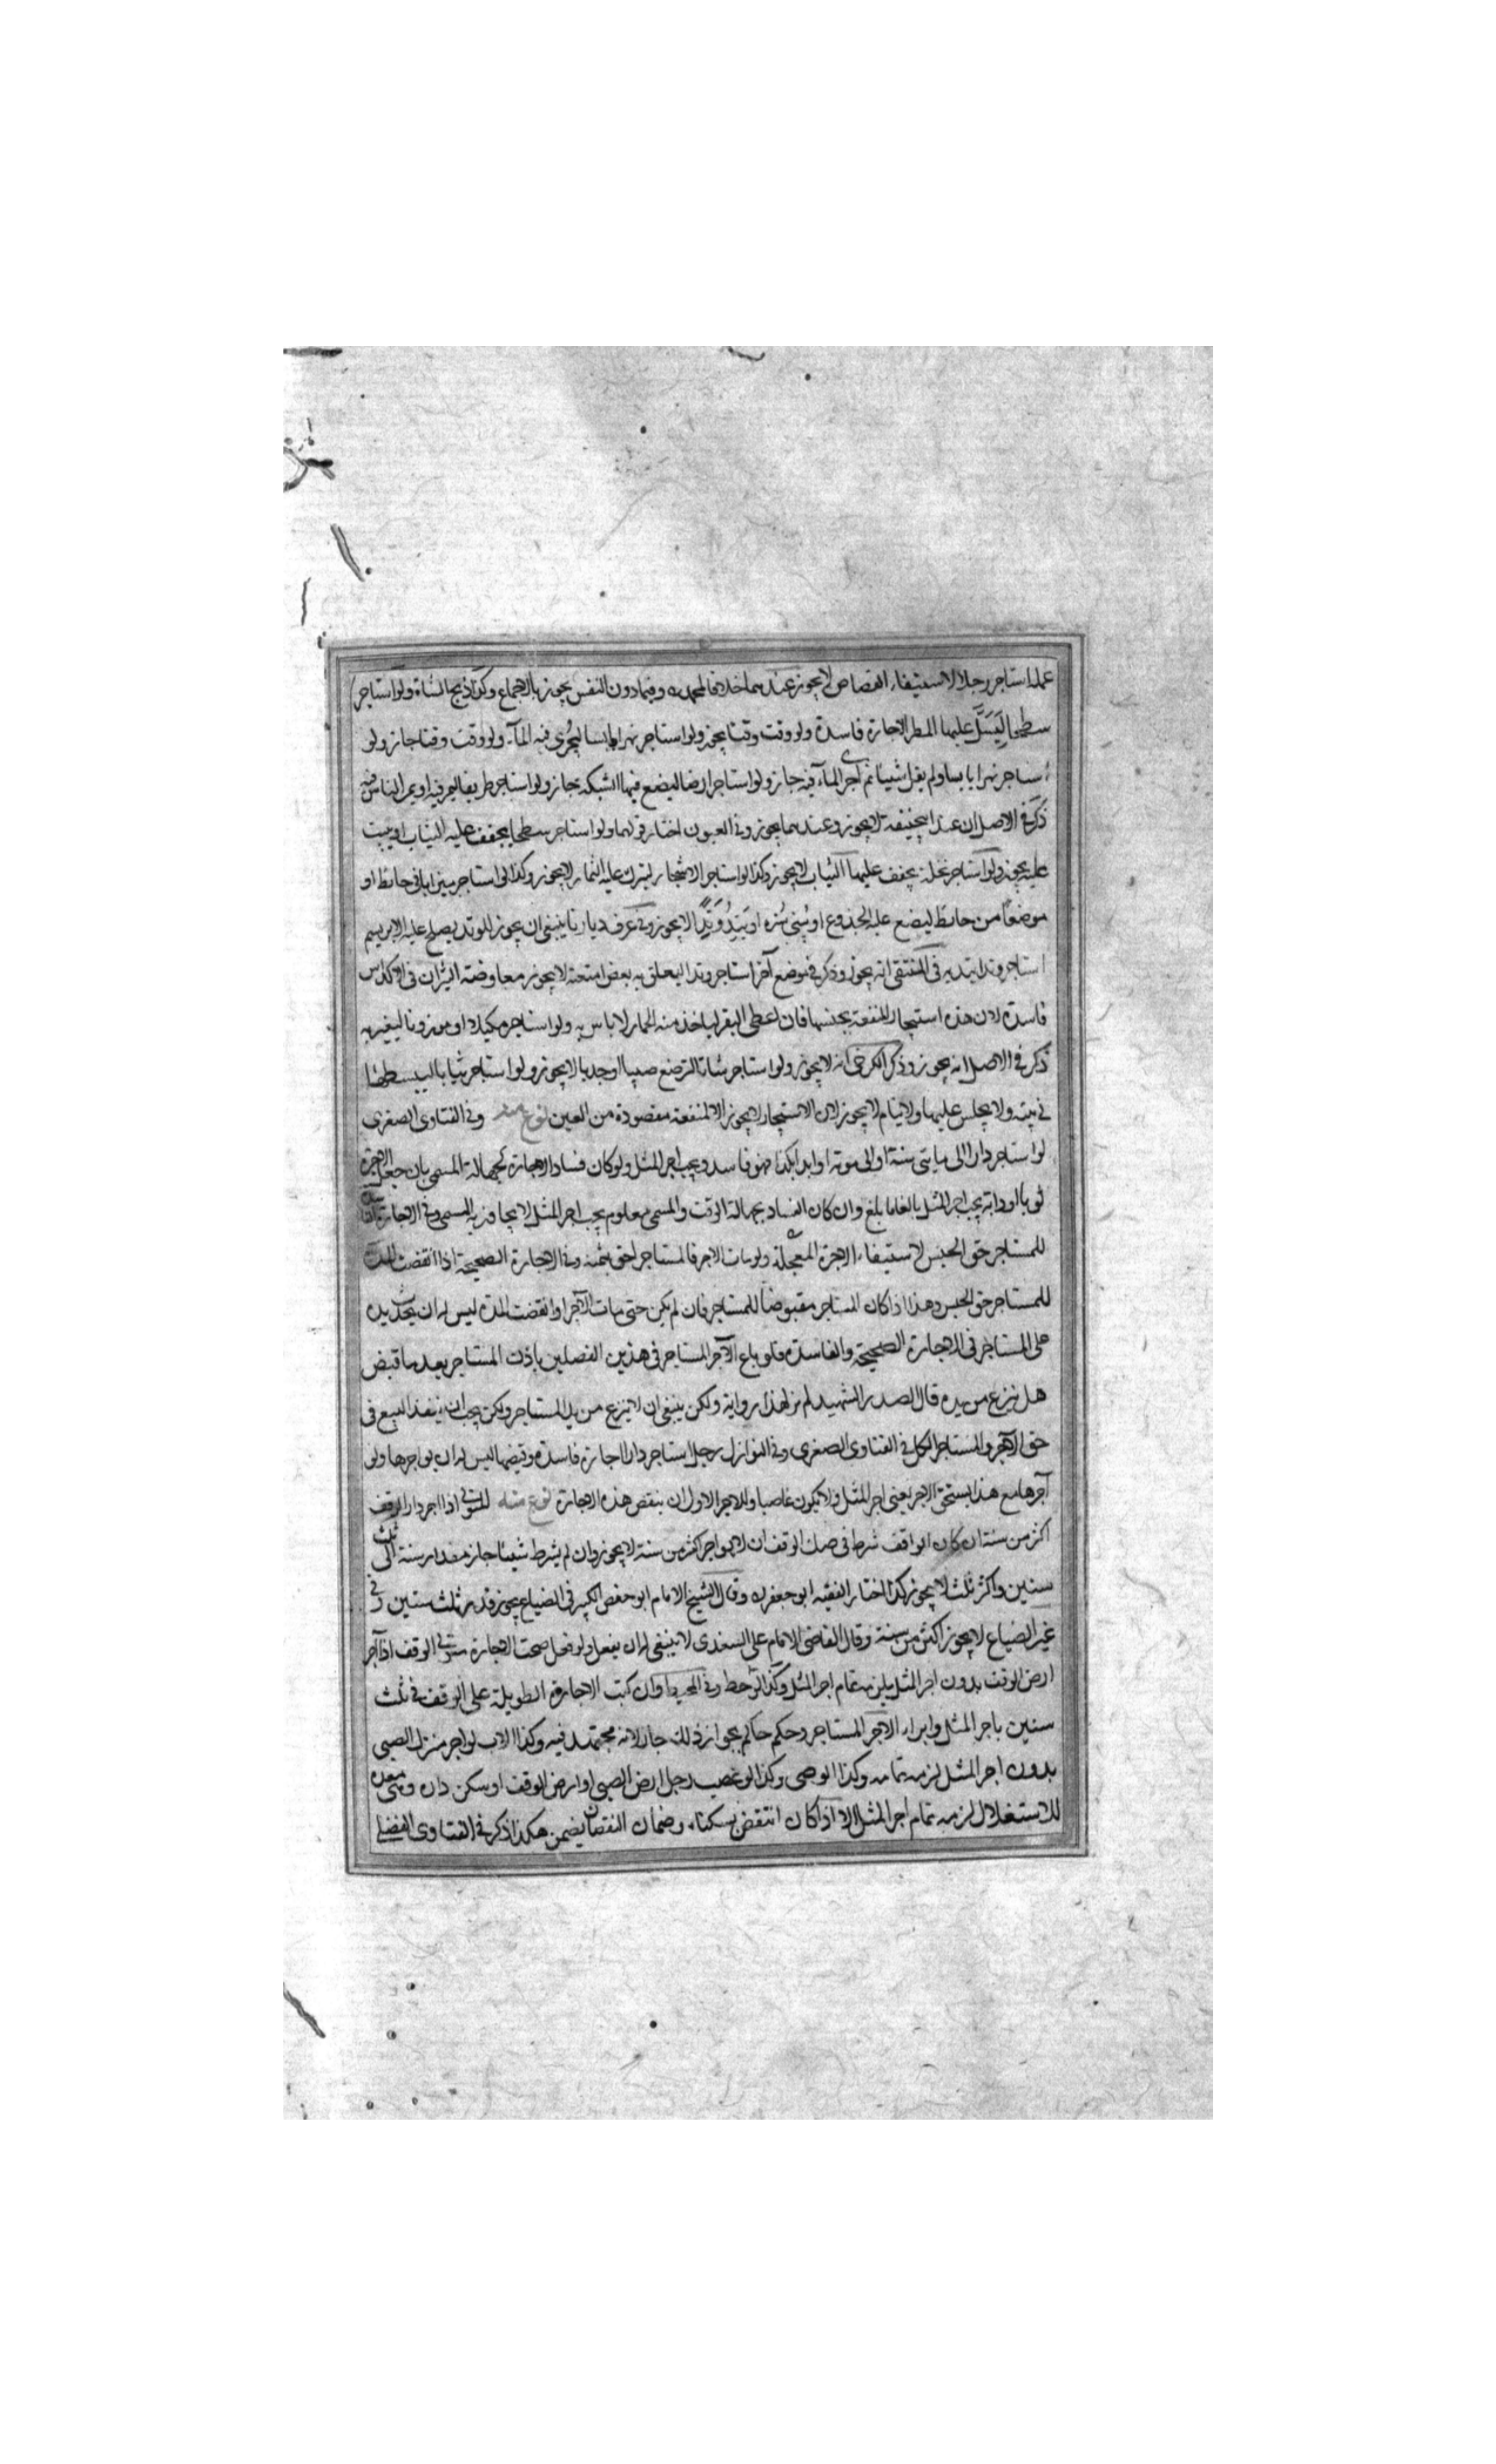 عمله استاجر رجلا لاستيفاء القصاص لا يجوز عندهما خلافا لمحمد ره وفيما دون النفس يجوز بالاجماع وكذا ذبح الشاة ولو استاجر
سطحا ليسيل عليها المطر الاجارة فاسدة ولو وقت وقتا يجوز ولو استاجر نهرا يابسا ليجري فيه المآء ولو وقت وقتا جاز ولو
استاجر نهرا يابسا ولم يقل شيئا ثم اجرى المآء فيه جاز ولو استاجر ارضا ليضع فيها الشبكة جاز ولو استاجر طريقا ليمر فيه او يمر الناس فيه
ذكر في الاصل ان عند ابيحنيفة لا يجوز وعندهما يجوز وفي العيون اختار قولهما ولو استاجر سطحا يجفف عليه الثياب او يبيت
عليه يجوز ولو استاجر نخلة يجفف عليها الثياب لا يجوز وكذا لو استاجر الاشجار ليترك عليه الثمار لا يجوز وكذا لو استاجر ميزابا في حائط او
موضعا من حائط ليضع عليه الجذوع او يبني سترة او يتد وتدا لا يجوز وفي عرف ديارنا ينبغي ان يجوز للوتد يصلح عليه الابريسم
استاجر وتدا يتد به في المنتقى انه يجوز وذكر في موضع آخر استاجر وتدا ليعلق به بعض امتعته لا يجوز معاوضة الثيران في الاكداس
فاسدة لان هذه استيجار المنفعة بجنسها فان اعطى البقر لياخذ منه الحمار لا باس به ولو استاجر مكيلا او موزونا ليغير به
ذكر في الاصل انه يجوز وذكر الكرخي انه لا يجوز ولو استاجر شاتا لترضع صبيا او جديا لا يجوز ولو استاجر ثيابا ليبسطها
في بيته ولا يجلس عليها ولا ينام لا يجوز لان الاستيجار لا يجوز الا لمنفعة مقصودة من العين نوع منه وفي الفتاوى الصغرى
لو استاجر دارا الى مايتي سنة او الى موته او ابد ابكذا فهو فاسد ويجب اجر المثل ولو كان فساد الاجارة لجهالة المسمى بان جعل الاجرة
ثوبا او دابة يجب اجر المثل بالغا ما بلغ وان كان الفساد بجهالة الوقت والمسمى معلوم يجب اجر المثل لا يجاوز به المسمى وفي الاجارة الفاسدة
للمستاجر حق الحبس لاستيفاء الاجرة المعجلة ولو مات الاجر فالمستاجر احق بثمنه وفي الاجارة الصحيحة اذا انقضت المدة
للمستاجر حق الحبس وهذا اذا كان المستاجر مقبوضا للمستاجر فان لم يكن حتى مات الآجر او انقضت المدة ليس له ان يحدث يده
على المستاجر في الاجارة الصحيحة والفاسدة فلو باع الآجر المستاجر في هذين الفصلين باذن المستاجر بعد ما قبض
هل نزع من يده قال الصدر الشهيد لم نر لهذا رواية ولكن ينبغي ان لا ينزع من يد المستاجر ولكن يجب ان ينفذ البيع في
حق الآجر والمستاجر الكل في الفتاوى الصغرى وفي النوازل رجل استاجر دارا اجارة فاسدة وقبضها ليس له ان يواجرها ولو
آجرها مع هذا يستحق الاجر يعني اجر المثل ولا يكون غاصبا وللاجر الاول ان ينقض هذه الاجارة نوع منه المتولي اذا اجر دار الوقف
اكثر من سنة ان كان الواقف شرط في صك الوقف ان لا يواجر اكثر من سنة لا يجوز وان لم يشرط شيئا جاز مقدار سنة الى ثلث
سنين واكثر ثلث لا يجوز كذا اختار الفقيه ابو جعفر ره وقال الشيخ الامام ابو حفص الكبير في الضياع يجوز قدر ثلث سنين وفي
غير الضياع لا يجوز اكثر من سنة وقال القاضي الامام علي السغدي لا ينبغي له ان يفعل ولو فعل صحت الاجارة متولي الوقف اذا آجر
ارض الوقف بدون اجر المثل يلزمه تمام اجر المثل وكذا لو حط وفي المحيط وان كتب الاجارة الطويلة على الوقف في ثلث
سنين باجر المثل وابراء الآجر المستاجر وحكم حاكم بجواز ذلك جاز لانه مجتهد فيه وكذا الاب لو اجر منزل الصبي
بدون اجر المثل لزمه تمامه وكذا الوصي وكذا لو غصب رجل ارض الصبي او ارض الوقف او سكن داره وهي معدة
للاستغلال لزمه تمام اجر المثل الا اذا كان انتقض بسكناه وضمان النقصان يضمن هكذا ذكر في الفتاوى الفضلي